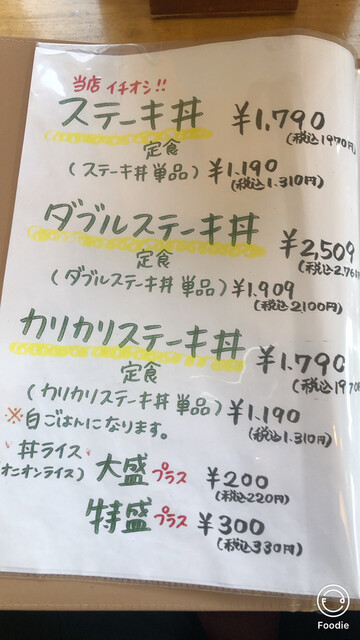 当店 イチオシ!!
ステーキ丼 ¥1,790
定食 (税込1970円
(ステーキ丼 単品) ¥1.190
(税込1.310円)
ダブルステーキ丼 ¥2,509
定食 (税込2.761
(ダブルステーキ丼 単品) ¥1.909
(税込2100円)
カリカリステーキ丼 ¥1.790
定食 (税込1970
(カリカリステーキ丼 単品) ¥1.190
※白ごはんになります。 (税込1.310円)
丼ライス
オニオンライス) 大盛プラス ¥200
(税込220円)
特盛プラス ¥300
(税込330円)
Foodie